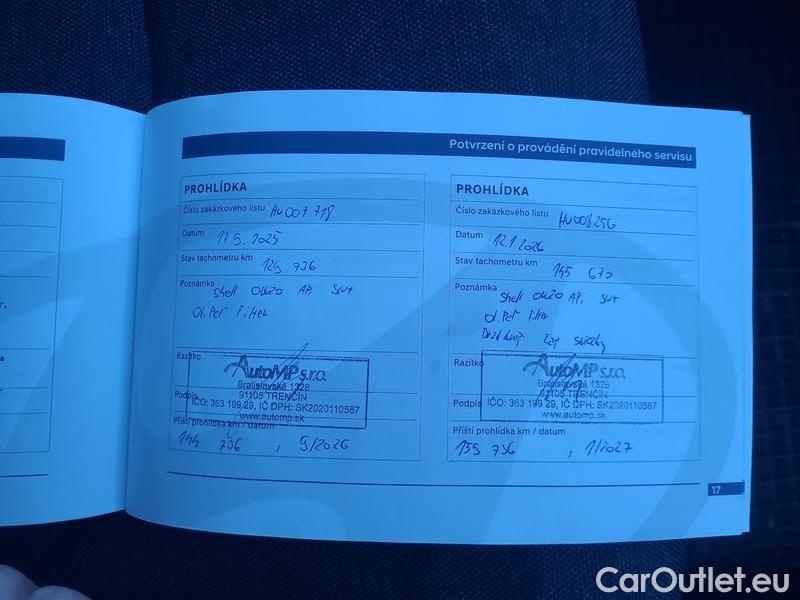 Potvrzení o provádění pravidelného servisu
PROHLÍDKA
Číslo zakázkového listu HU007 718
Datum 17 9. 2025
Stav tachometru km 129 736
Poznámka Shell 0W20 API SN+
Ol. Peř Filter
Razítko
AutoMP s.r.o.
Bratislavská 1328
91105 TRENČÍN
Podpis
IČO: 363 199 29, IČ DPH: SK2020110587
www.automp.sk
Příští prohlídka km / datum
144 736 , 9/2026
PROHLÍDKA
Číslo zakázkového listu HU008256
Datum 12.1.2026
Stav tachometru km 145 670
Poznámka
Shell 0W20 API SN+
Ol. Peř Filter
zap sviečky
Razítko
AutoMP s.r.o.
Bratislavská 1328
91105 TRENČÍN
Podpis
IČO: 363 199 29, IČ DPH: SK2020110587
www.automp.sk
Příští prohlídka km / datum
159 736 , 1/2027
17
CarOutlet.eu